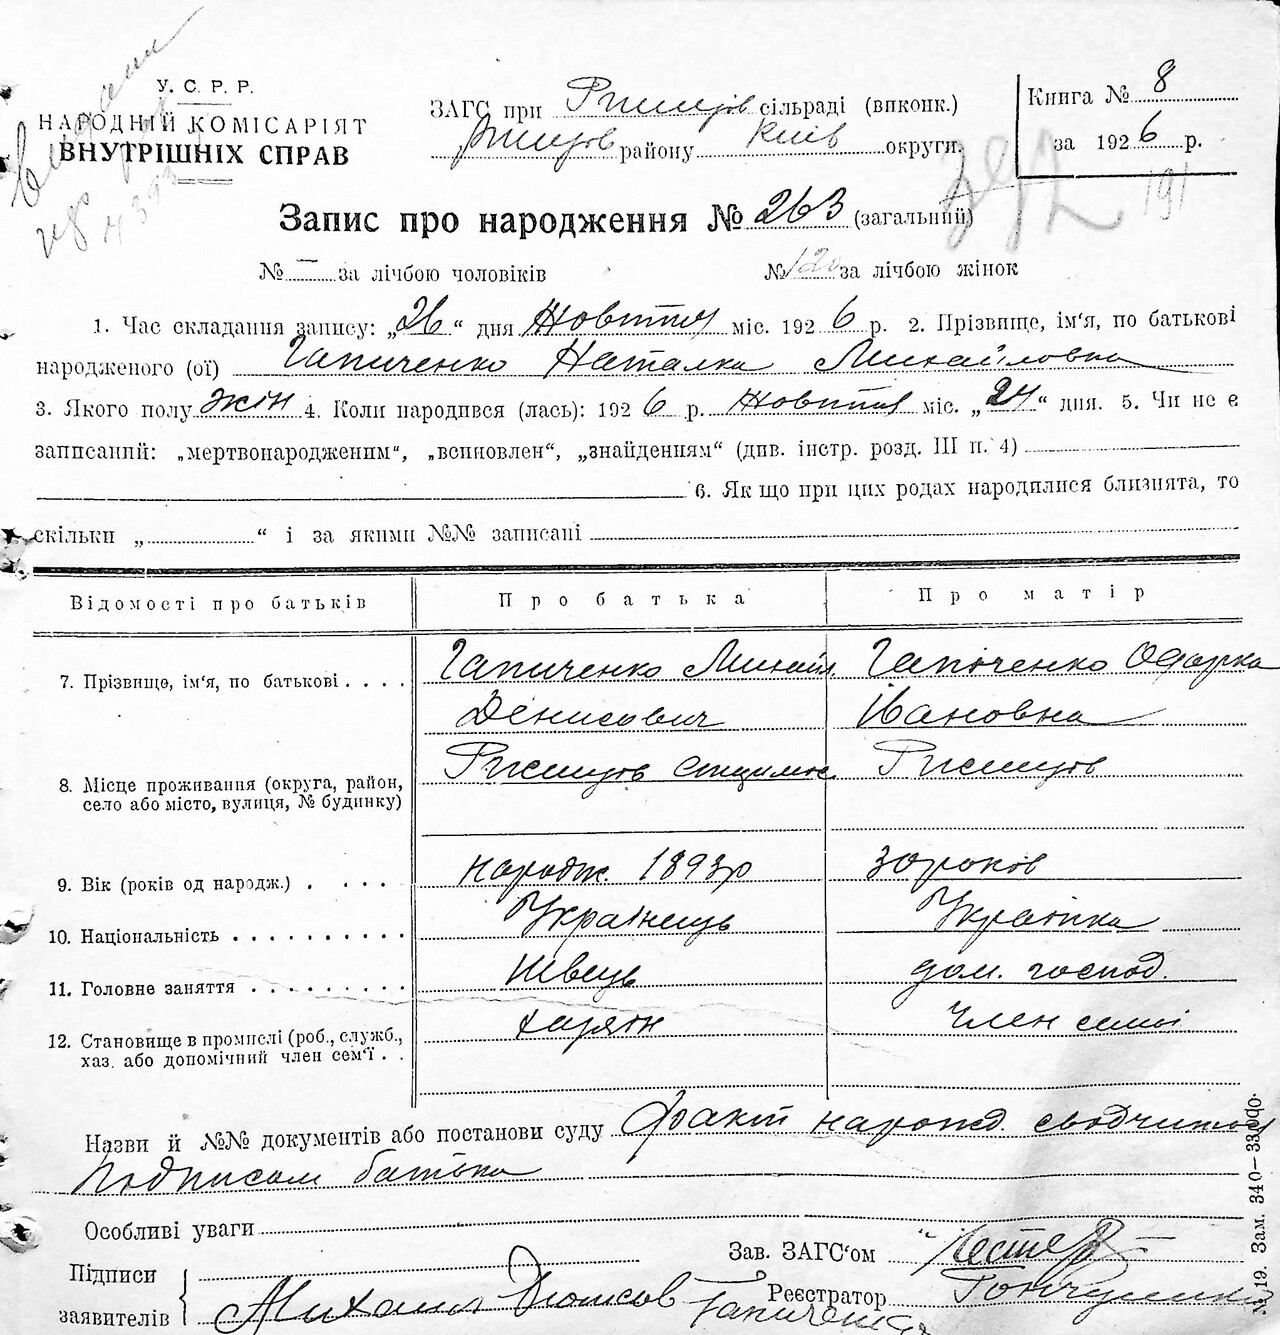 У. С. Р. Р.
НАРОДНІЙ КОМІСАРІЯТ
ВНУТРІШНІХ СПРАВ
ЗАГС при Ржищів сільраді (виконк.)
Ржищов району Київ округи.
Книга № 8
за 1926 р.
Запис про народження № 263 (загальний)
191
№ — за лічбою чоловіків № 120 за лічбою жінок
1. Час складання запису: „26“ дня Жовтня міс. 1926 р. 2. Прізвище, ім'я, по батькові
народженого (ої) Гапиченко Наталка Михайловна
3. Якого полу жін 4. Коли народився (лась): 1926 р. Жовтня міс. „24“ дня. 5. Чи не є
записаний: „мертвонародженим“, „всиновлен“, „знайденням“ (див. інстр. розд. III п. 4)
6. Як що при цих родах народилися близнята, то
скільки „ “ і за якими №№ записані
Відомості про батьків Про батька Про матір
7. Прізвище, ім'я, по батькові . . . . Гапиченко Михайл. Гапиченко Одарка
Денисович Івановна
8. Місце проживання (округа, район, село або місто, вулиця, № будинку) Ржищов Ржищов
9. Вік (років од народж.) . . . . . народж. 1893р 30 роков
10. Національність . . . . . . . . . . Українець Українка
11. Головне заняття . . . . . . . . . Швець дом. господ.
12. Становище в промислі (роб., служб., хаз. або допомічний член сем'ї . . хазяїн Член семьї
Назви й №№ документів або постанови суду Факт народ. сводчится
подписом батька
Особливі уваги
Зав. ЗАГС'ом
Підписи
заявителів Михаил Гапиченко
Реєстратор
№ 19. Зам. 340–33.000.